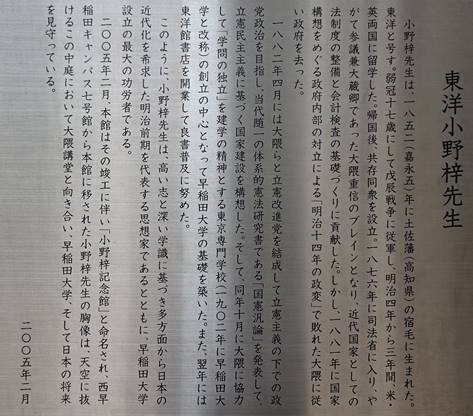 東洋小野梓先生
小野梓先生は、一八五二（嘉永五）年に土佐藩（高知県）の宿毛に生まれた。
東洋と号す。弱冠十七歳にして戊辰戦争に従軍し、明治四年から三年間、米
英両国に留学した。帰国後、共存同衆を設立。一八七六年に司法省に入り、や
がて参議兼大蔵卿であった大隈重信のブレインとなり、近代国家としての
法制度の整備と会計検査の基礎づくりに貢献した。しかし、一八八一年に国家
構想をめぐる政府内部の対立による「明治十四年の政変」で敗れた大隈に従
い政府を去った。
一八八二年四月には大隈らと立憲改進党を結成して立憲主義の下での政
党政治を目指し、当代随一の体系的憲法研究書である「国憲汎論」を発表して、
立憲民主主義に基づく国家建設を構想した。そして、同年十月に大隈に協力
して「学問の独立」を建学の精神とする東京専門学校（一九〇二年に早稲田大
学と改称）の創立の中心となって早稲田大学の基礎を築いた。また、翌年には
東洋館書店を開業して良書普及に努めた。
このように、小野梓先生は、高い志と深い学識に基づき多方面から日本の
近代化を希求した明治前期を代表する思想家であるとともに、早稲田大学
設立の最大の功労者である。
二〇〇五年二月、本館はその竣工に伴い「小野梓記念館」と命名され、西早
稲田キャンパス七号館から本館に移された小野梓先生の胸像は、天空に抜
けるこの中庭において大隈講堂と向き合い、早稲田大学、そして日本の将来
を見守っている。
二〇〇五年二月